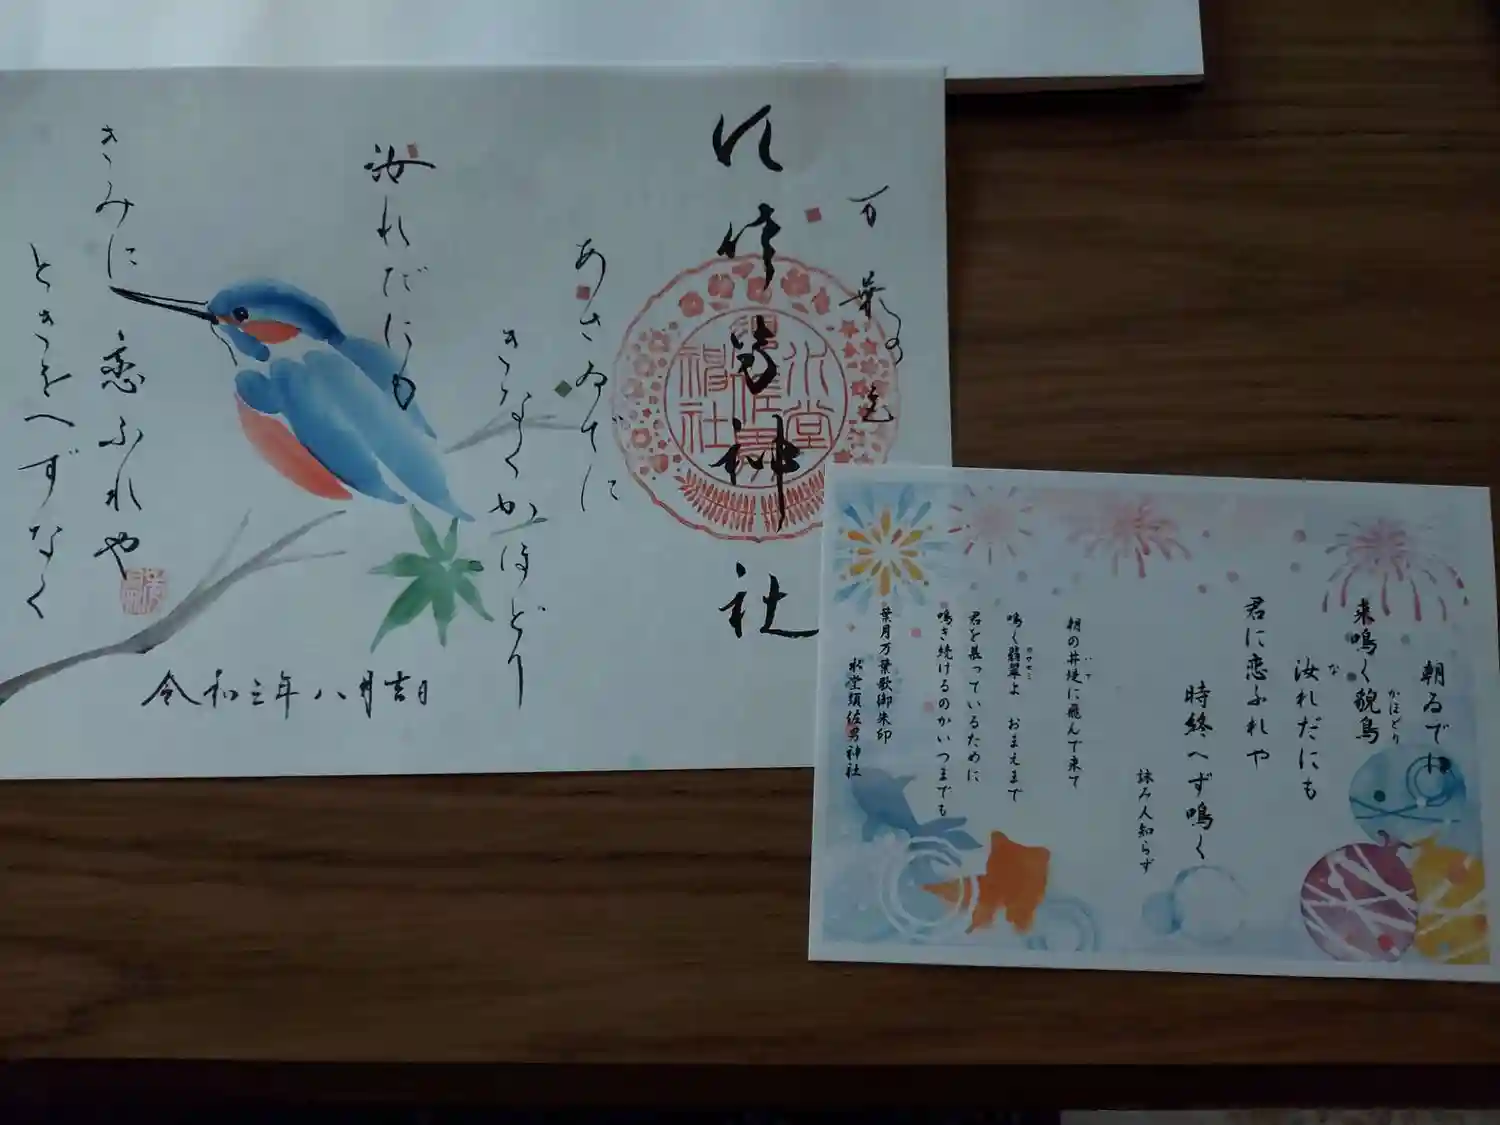 万葉の花
須佐男神社
水堂須佐男神社
あさゐでに
きなくかほどり
汝れだにも
きみに
恋ふれや
ときをへずなく
令和三年八月吉日
朝ゐでに
来鳴く貌鳥
かほどり
汝れだにも
な
君に恋ふれや
時終へず鳴く
詠み人知らず
朝の井堤に飛んで来て
いで
鳴く翡翠よ おまえまで
カワセミ
君を慕っているために
鳴き続けるのかいつまでも
葉月万葉歌御朱印
水堂須佐男神社